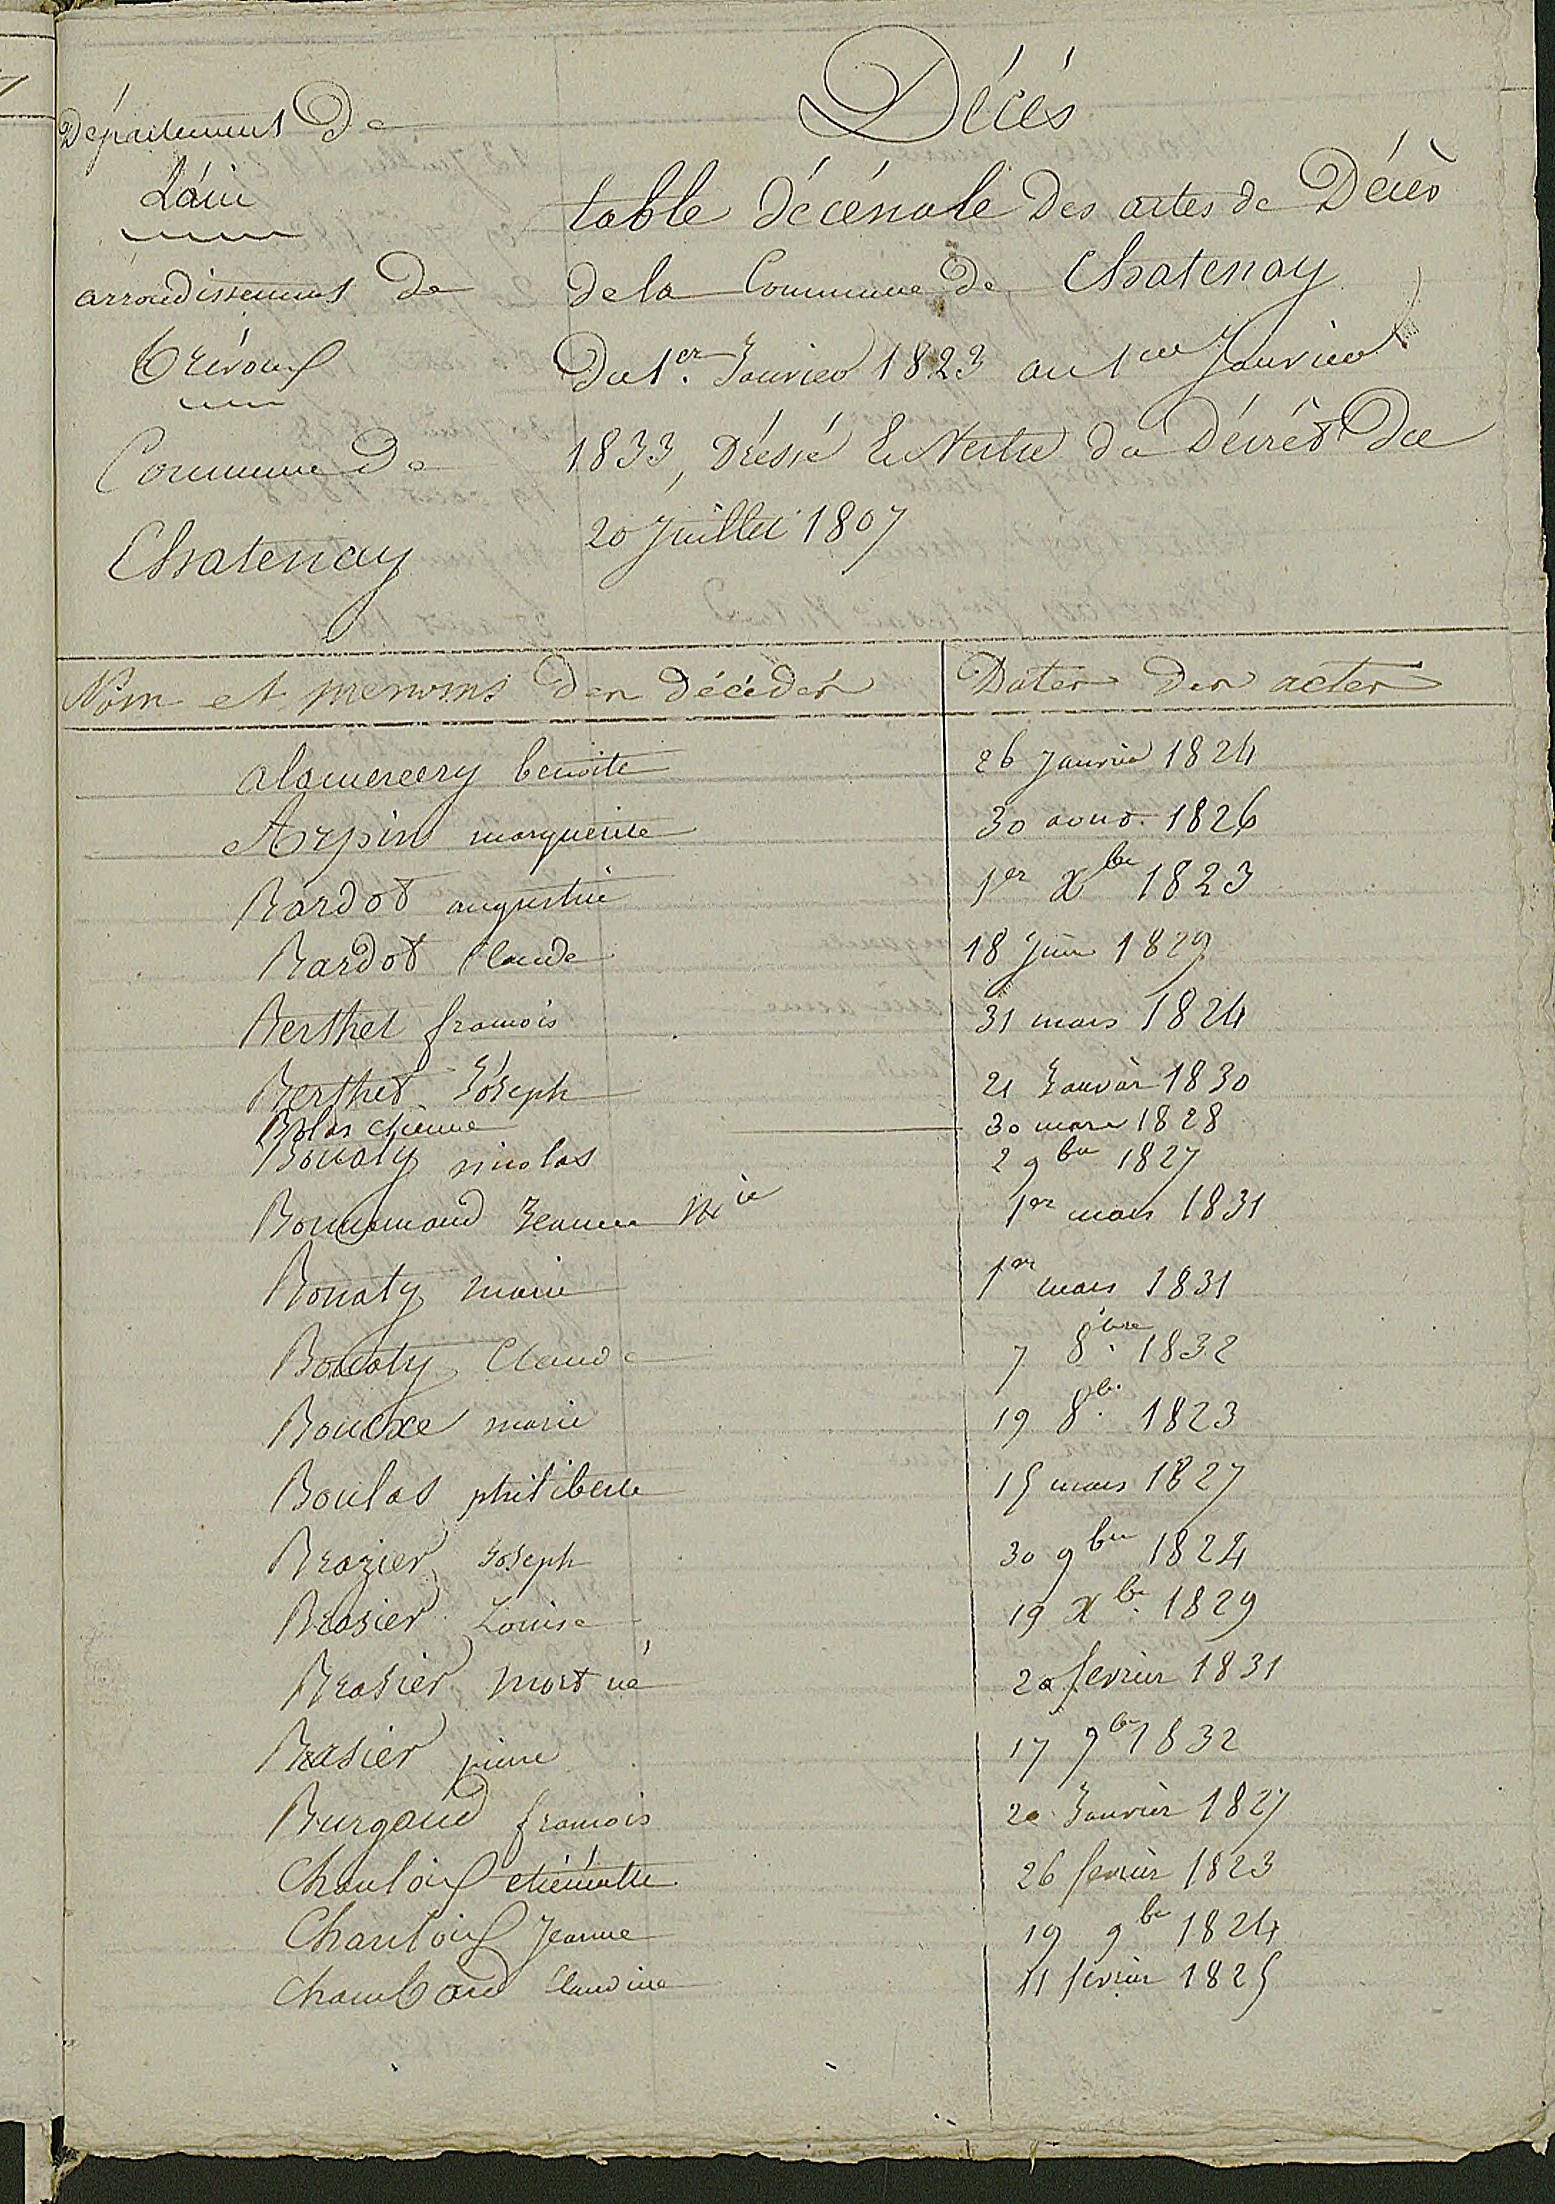 Décés
Département De
L'áin
arrondissement De
Trévoux
Commune De
Chatenay
table décénale Des actes de Décès
de la Commune de Chatenay
Du 1er. Janvier 1823 au 1er Janvier
1833, Dréssé En Vertu du Décrèt Du
20 Juillet 1807
Nom et prenoms Des décédés | Dates Des actes
alamercery benoite | 26 Janvier 1824
Arpin marguerite | 30 1826
Bardot augustin | 1er Xbre 1823
Bardot Claude | 18 Juin 1829
Berthet francois | 31 mars 1824
Berthet Jóseph | 21 Janvier 1830
Etienne | 30 mars 1828
Bonaty nicolas | 2 9bre 1827
Bonnamand Jeanne Mie | 1er mars 1831
Bonaty marie | 1er mars 1831
Bonaty Claude | 7 8bre 1832
marie | 19 8b. 1823
Boulas philiberte | 15 mars 1827
Brazier Joseph | 30 9bre 1824
Brasier Louise | 19 Xbr. 1829
Brasier mort né | 20 fevrier 1831
Brasier pierre | 17 9br 1832
Burgaud francois | 20 Janvier 1827
etiénnette | 26 fevrier 1823
Jeanne | 19 9br 1824
Chambard Claudine | 11 fevrier 1825